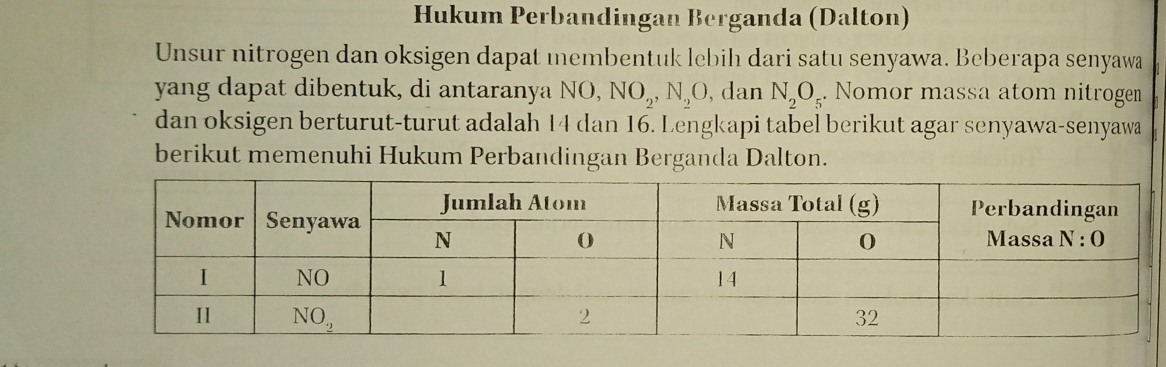 Hukum Perbandingan Berganda (Dalton)
Unsur nitrogen dan oksigen dapat membentuk lebih dari satu senyawa. Beberapa senyawa
yang dapat dibentuk, di antaranya NO, NO₂, N₂O, dan N₂O₅. Nomor massa atom nitrogen
dan oksigen berturut-turut adalah 14 dan 16. Lengkapi tabel berikut agar senyawa-senyawa
berikut memenuhi Hukum Perbandingan Berganda Dalton.
Nomor Senyawa Jumlah Atom Massa Total (g) Perbandingan
N O N O Massa N : O
I NO 1 14
II NO₂ 2 32